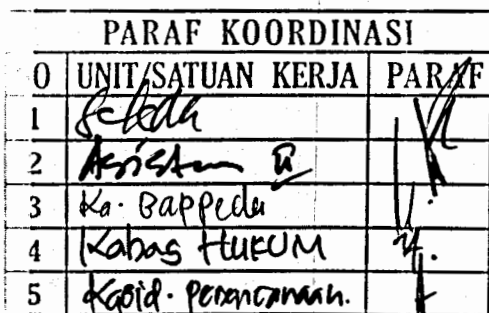 PARAF KOORDINASI
O UNIT/SATUAN KERJA PARAF
1 Sekda
2 Asisten II
3 Ka. Bappeda
4 Kabag HUKUM
5 Kabid. Perencanaan.